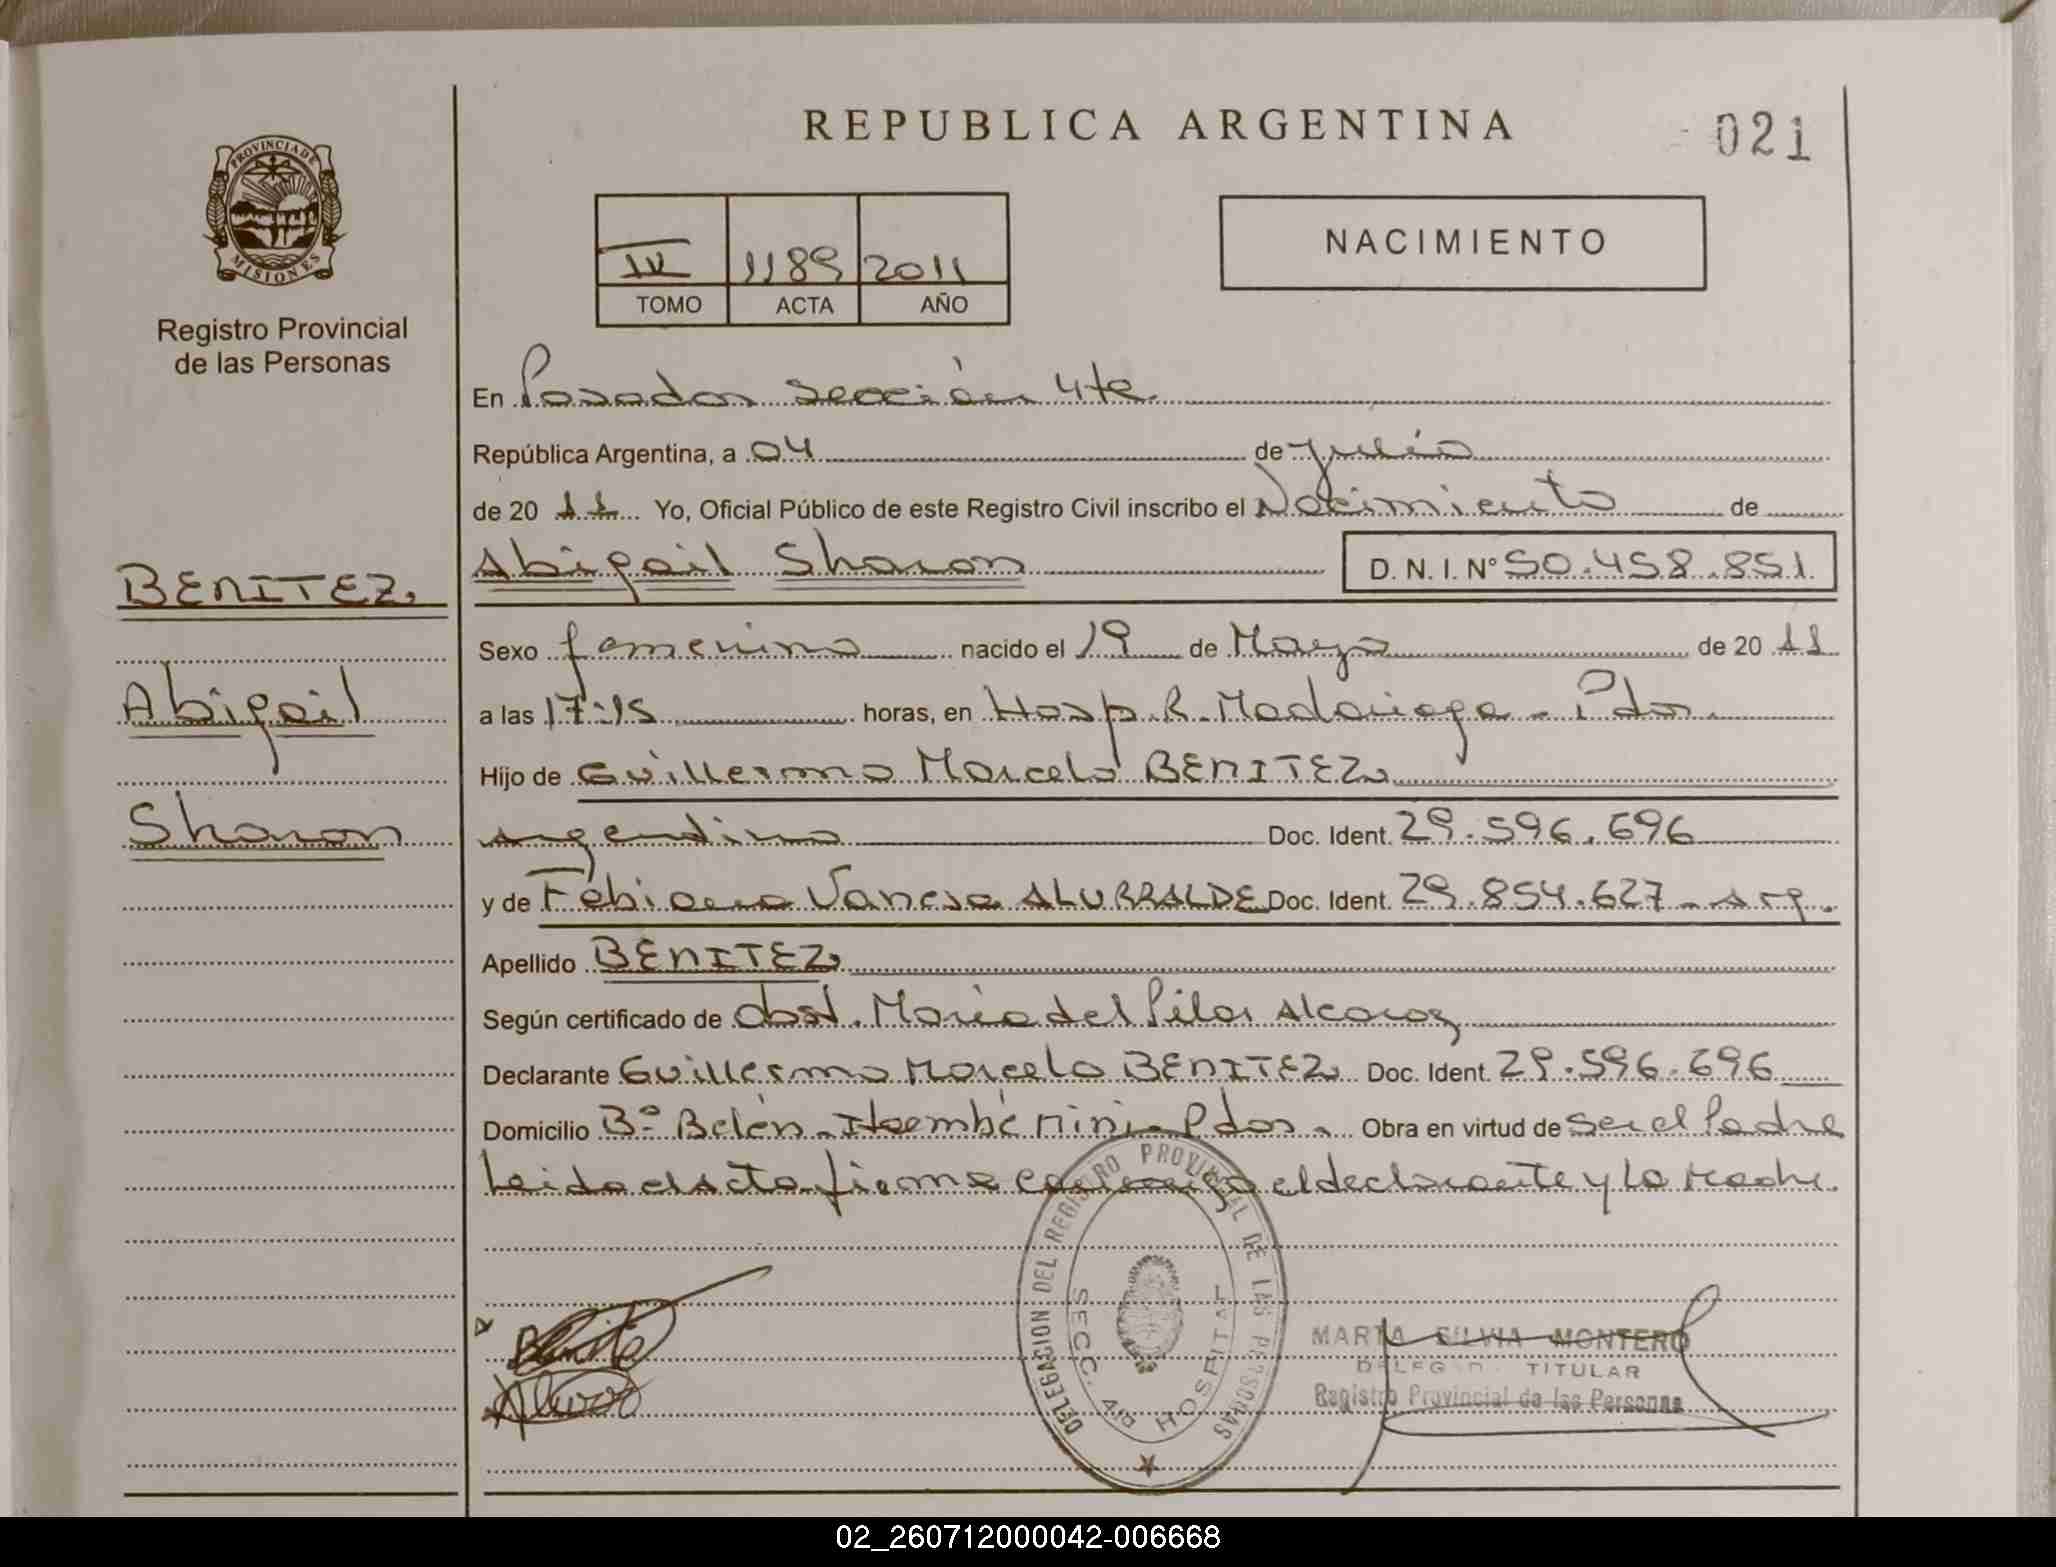 REPUBLICA ARGENTINA
021
PROVINCIA DE
MISIONES
Registro Provincial
de las Personas
NACIMIENTO
IV 1189 2011
TOMO ACTA AÑO
En Posadas Sección 4ta
República Argentina, a 04 de Julio
de 20 11 Yo, Oficial Público de este Registro Civil inscribo el Nacimiento de
BENITEZ
Abigail
Sharon
Abigail Sharon D. N. I. N° 50.458.851
Sexo femenino nacido el 19 de Mayo de 20 11
a las 17:15 horas, en Hosp. R. Madariaga - Pdas.
Hijo de Guillermo Marcelo BENITEZ
argentino Doc. Ident. 29.596.696
y de Fabiana Vanesa ALURRALDE Doc. Ident. 29.854.627 - Arg.
Apellido BENITEZ
Según certificado de obst. María del Pilar Alcaraz
Declarante Guillermo Marcelo BENITEZ Doc. Ident. 29.596.696
Domicilio B° Belén - Itaembé Mini - Pdas. Obra en virtud de ser el Padre
Leída el Acta firma conmigo el declarante y la Madre.
DELEGACION DEL REGISTRO PROVINCIAL DE LAS PERSONAS
SECC. 4ta HOSPITAL
MARTA SILVIA MONTERO
DELEGADA TITULAR
Registro Provincial de las Personas
02_260712000042-006668